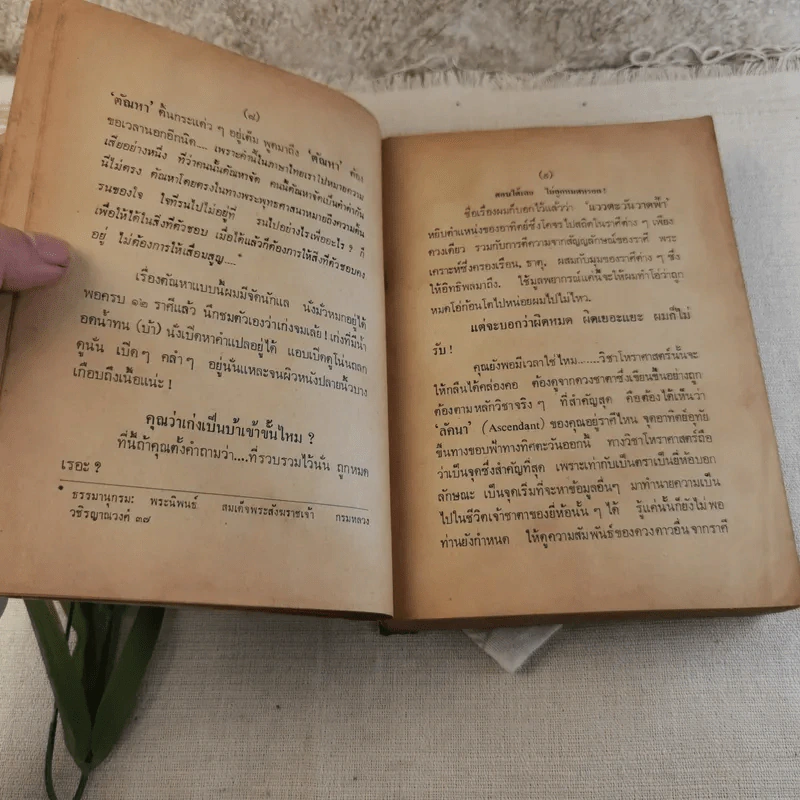 (๘)
'ตัณหา' ดิ้นกระแด่ว ๆ อยู่เต็ม พูดมาถึง 'ตัณหา' ต้อง
ขอเวลานอกอีกนิด.... เพราะคำนี้ในภาษาไทยเราไปหมายความ
เสียอย่างหนึ่ง ที่ว่าคนนั้นตัณหาจัด คนนี้ตัณหาจัดเป็นคำด่ากัน
นี่ไม่ตรง ตัณหาโดยตรงในทางพระพุทธศาสนาหมายถึงความดิ้น
รนของใจ ใจที่รนไปไม่อยู่ที่ รนไปอย่างไรเพื่ออะไร ? ก็
เพื่อให้ได้ในสิ่งที่ตัวชอบ เมื่อได้แล้วก็ต้องการให้สิ่งที่ตัวชอบคง
อยู่ ไม่ต้องการให้เสื่อมสูญ....*
เรื่องตัณหาแบบนี้ผมมีจัดนักแล นั่งมั่วหมกอยู่ได้
พอครบ ๑๒ ราศีแล้ว นึกชมตัวเองว่าเก่งจมเลย ! เก่งที่มีน้ำ
อดน้ำทน (บ้า) นั่งเปิดหาคำแปลอยู่ได้ แอบเปิดดูโน่นถลก
ดูนั่น เปิดๆ คลำๆ อยู่นั่นแหละจนผิวหนังปลายนิ้วบาง
เกือบถึงเนื้อแน่ะ !
คุณว่าเก่งเป็นบ้าเข้าขั้นไหม ?
ที่นี้ถ้าคุณตั้งคำถามว่า....ที่รวบรวมไว้นั่น ถูกหมด
เรอะ ?
* ธรรมานุกรม: พระนิพนธ์ สมเด็จพระสังฆราชเจ้า กรมหลวง
วชิรญาณวงศ์ ๓๗
(๙)
ตอบได้เลย ไม่ถูกหมดหรอก !
ชื่อเรื่องผมก็บอกไว้แล้วว่า 'แววตะวันวาดฟ้า'
หยิบตำแหน่งของอาทิตย์ซึ่งโคจรไปสถิตในราศีต่าง ๆ เพียง
ดวงเดียว รวมกับการตีความจากสัญญลักษณ์ของราศี พระ
เคราะห์ซึ่งครองเรือน, ธาตุ, ผสมกับมุมของราศีต่าง ๆ ซึ่ง
ให้อิทธิพลมาถึง. ใช้มูลพยากรณ์แค่นี้จะให้ผมทำโอ่ว่าถูก
หมดโอ่ก้อนโตไปหน่อยผมไปไม่ไหว.
แต่จะบอกว่าผิดหมด ผิดเยอะแยะ ผมก็ไม่
รับ !
คุณยังพอมีเวลาใช่ไหม....วิชาโหราศาสตร์นั้นจะ
ให้กลืนได้คล่องคอ ต้องดูจากดวงชาตาซึ่งเขียนขึ้นอย่างถูก
ต้องตามหลักวิชาจริง ๆ ที่สำคัญสุด คือต้องได้เห็นว่า
'ลัคนา' (Ascendant) ของคุณอยู่ราศีไหน จุดอาทิตย์อุทัย
ขึ้นทางขอบฟ้าทางทิศตะวันออกนี้ ทางวิชาโหราศาสตร์ถือ
ว่าเป็นจุดซึ่งสำคัญที่สุด เพราะเท่ากับเป็นตราเป็นยี่ห้อบอก
ลักษณะ เป็นจุดเริ่มที่จะหาข้อมูลอื่นๆ มาทำนายความเป็น
ไปในชีวิตเจ้าชาตาของยี่ห้อนั้น ๆ ได้ รู้แค่นั้นก็ยังไม่พอ
ท่านยังกำหนด ให้ดูความสัมพันธ์ของดวงดาวอื่นจากราศี